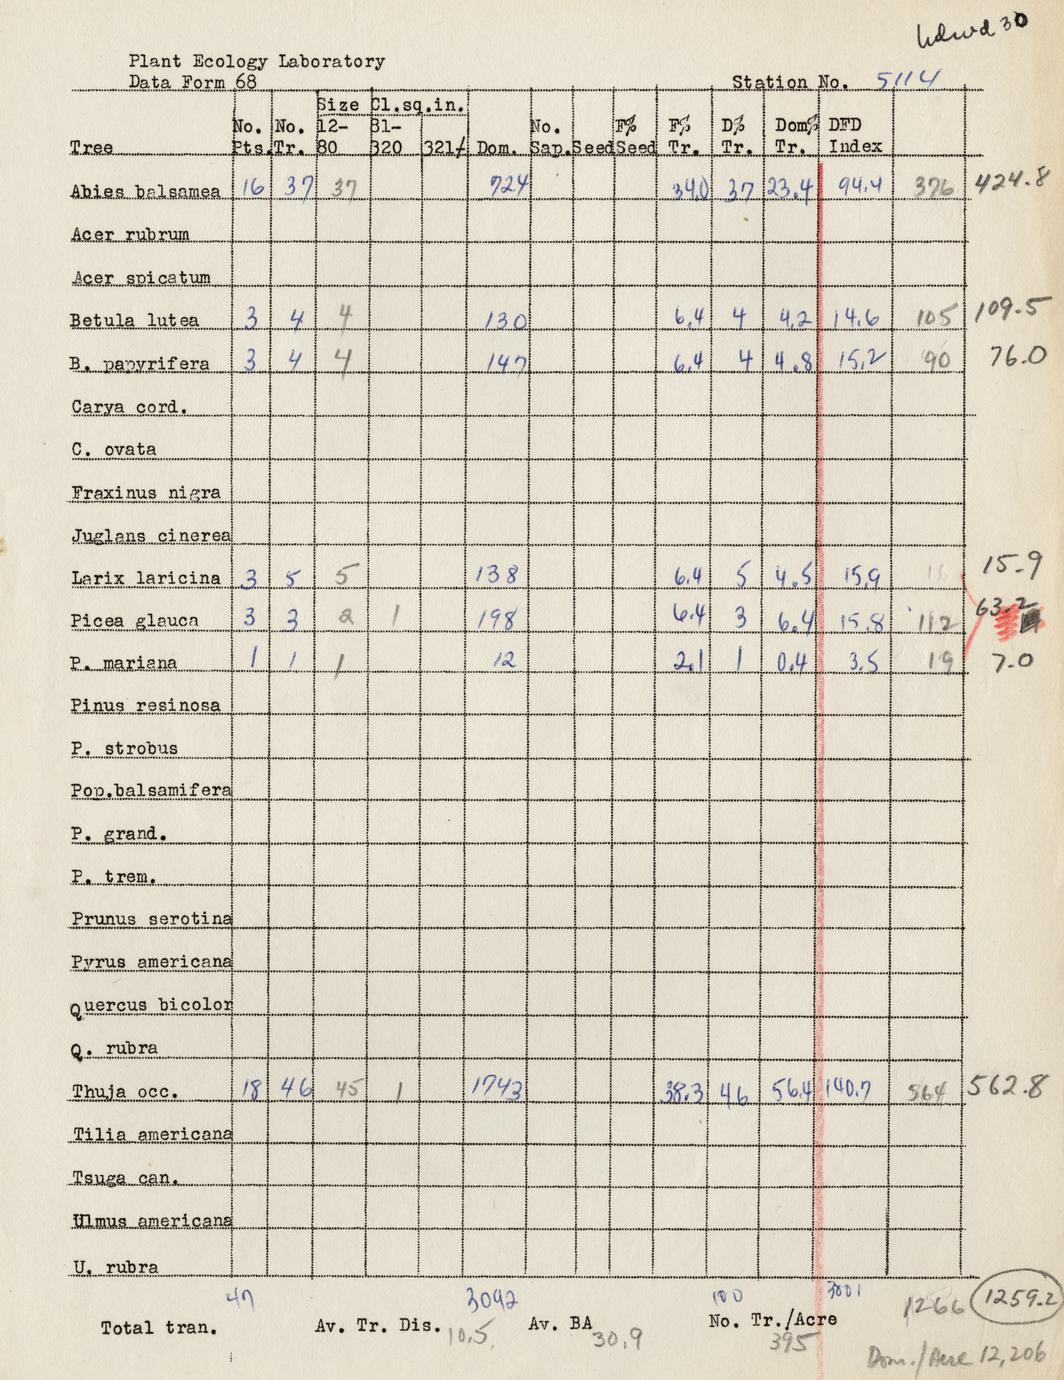 30
Plant Ecology Laboratory
Data Form 68 Station No. 5114
Size Cl.sq.in.
No. No. 12- 81- No. F% F% D% Dom% DFD
Tree Pts. Tr. 80 320 321/ Dom. Sap. Seed Seed Tr. Tr. Tr. Index
Abies balsamea 16 37 37 724 34.0 37 23.4 94.4 376 424.8
Acer rubrum
Acer spicatum
Betula lutea 3 4 4 130 6.4 4 4.2 14.6 105 109.5
B. papyrifera 3 4 4 147 6.4 4 4.8 15.2 90 76.0
Carya cord.
C. ovata
Fraxinus nigra
Juglans cinerea
Larix laricina 3 5 5 138 6.4 5 4.5 15.9 16 15.9
Picea glauca 3 3 2 1 198 6.4 3 6.4 15.8 112 63.2
P. mariana 1 1 1 12 2.1 1 0.4 3.5 19 7.0
Pinus resinosa
P. strobus
Pop.balsamifera
P. grand.
P. trem.
Prunus serotina
Pyrus americana
Quercus bicolor
Q. rubra
Thuja occ. 18 46 45 1 1743 38.3 46 56.4 140.7 564 562.8
Tilia americana
Tsuga can.
Ulmus americana
U. rubra
47 3092 100 3001 1266 1259.2
Total tran. Av. Tr. Dis. 10.5 Av. BA 30.9 No. Tr./Acre 395
Dom./Acre 12,206